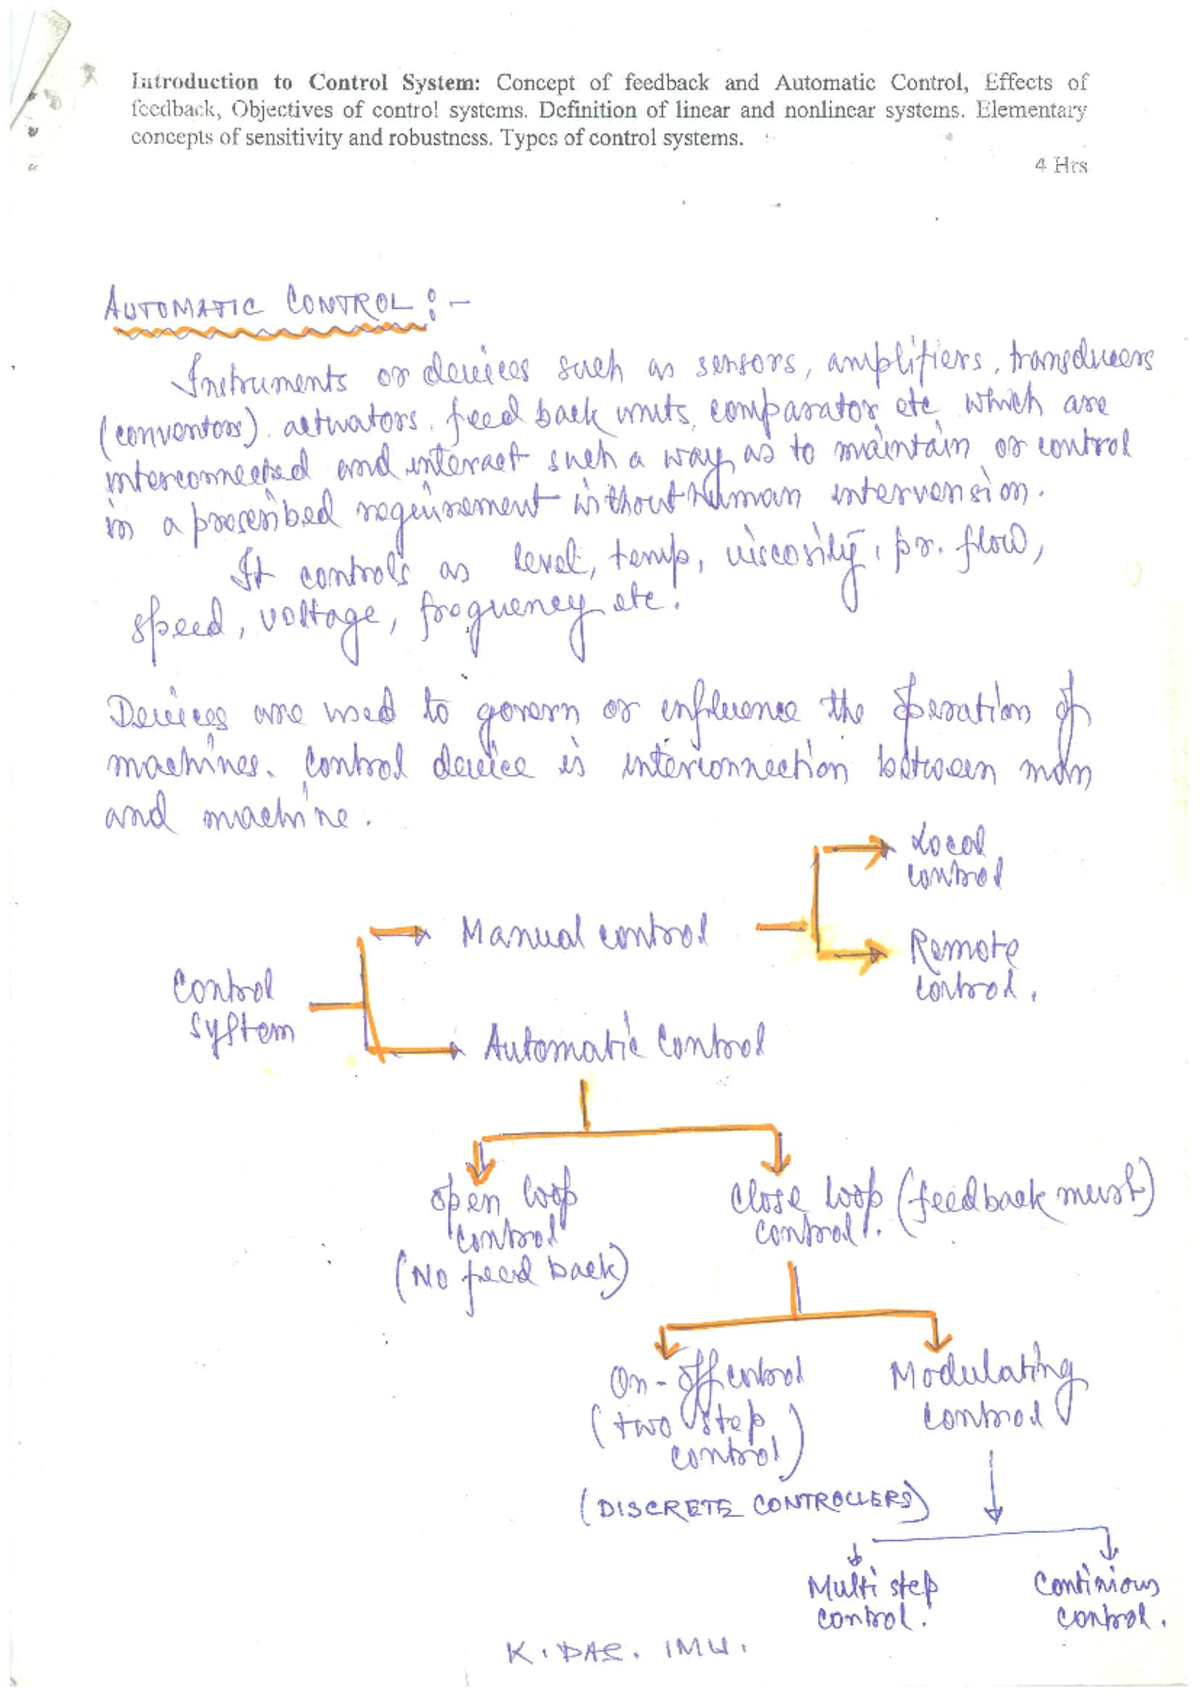 Introduction to Control System: Concept of feedback and Automatic Control, Effects of
feedback, Objectives of control systems. Definition of linear and nonlinear systems. Elementary
concepts of sensitivity and robustness. Types of control systems.
4 Hrs
AUTOMATIC CONTROL :-
Instruments or devices such as sensors, amplifiers, transducers
(conventors), actuators, feed back units, comparator etc which are
interconnected and interact such a way as to maintain or control
in a prescribed requirement without Human intervension.
It controls as level, temp, viscosity, pr. flow,
speed, voltage, frequency etc.
Devices are used to govern or influence the operation of
machines. Control device is interconnection between man
and machine.
Local
control
Manual control
Remote
control.
Control
system
Automatic Control
open loop
control
(No feed back)
Close loop (feedback must)
control.
On-off control
(two step
control)
(DISCRETE CONTROLLERS)
Modulating
control
Multi step
control.
Continious
control.
K. DAS. IMU.